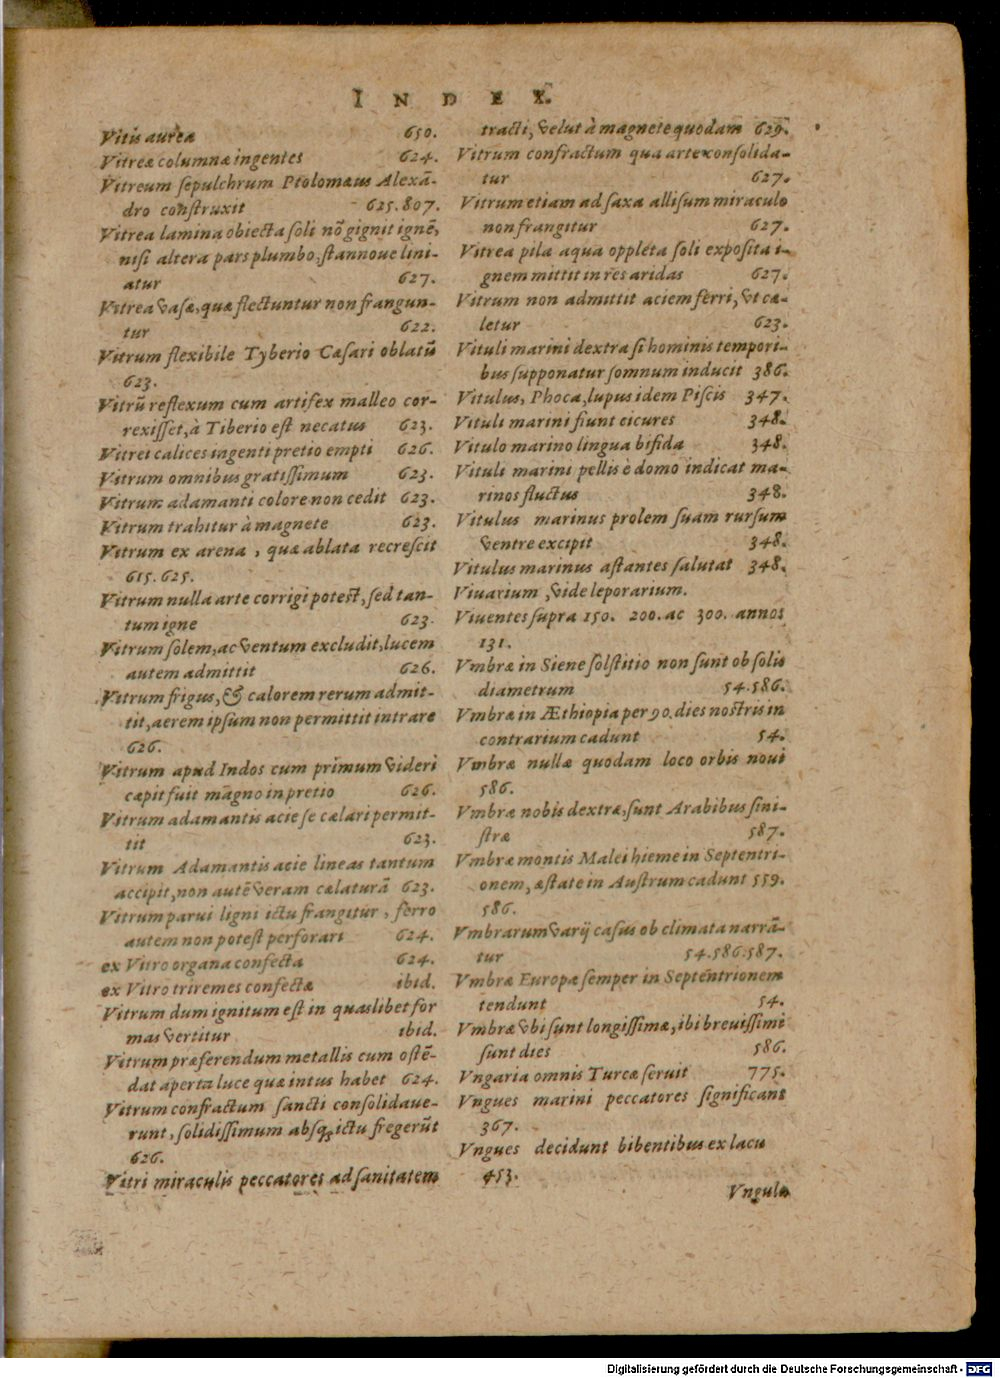 INDEX.
Vitis aurea 650.
Vitreæ columnæ ingentes 624.
Vitreum ſepulchrum Ptolomæus Alexã-
dro conſtruxit 625.807.
Vitrea lamina obiecta ſoli nõ gignit ignẽ,
niſi altera pars plumbo, ſtannoue lini-
atur 627.
Vitrea vaſa, quæ flectuntur non frangun-
tur 622.
Vitrum flexibile Tyberio Cæſari oblatũ
623.
Vitrũ reflexum cum artifex malleo cor-
rexiſſet, à Tiberio eſt necatus 623.
Vitrei calices ingenti pretio empti 626.
Vitrum omnibus gratiſſimum 623.
Vitrum adamanti colore non cedit 623.
Vitrum trahitur à magnete 623.
Vitrum ex arena, quæ ablata recreſcit
615.625.
Vitrum nulla arte corrigi poteſt, ſed tan-
tum igne 623.
Vitrum ſolem, ac ventum excludit, lucem
autem admittit 626.
Vitrum frigus, & calorem rerum admit-
tit, aerem ipſum non permittit intrare
626.
Vitrum apud Indos cum primum videri
cæpit fuit magno in pretio 626.
Vitrum adamantis acie ſe cælari permit-
tit 623.
Vitrum Adamantis acie lineas tantum
accipit, non autẽ veram cælaturã 623.
Vitrum parui ligni ictu frangitur, ferro
autem non poteſt perforari 624.
ex Vitro organa confecta 624.
ex Vitro triremes confectæ ibid.
Vitrum dum ignitum eſt in quaslibet for
mas vertitur ibid.
Vitrum præferendum metallis cum oſtẽ-
dat aperta luce quæ intus habet 624.
Vitrum confractum ſancti conſolidaue-
runt, ſolidiſſimum abſq; ictu fregerũt
626.
Vitri miraculis peccatores ad ſanitatem
tracti, velut à magnete quodam 629.
Vitrum confractum qua arte conſolida-
tur 627.
Vitrum etiam ad ſaxa alliſum miraculo
non frangitur 627.
Vitrea pila aqua oppleta ſoli expoſita i-
gnem mittit in res aridas 627.
Vitrum non admittit aciem ferri, vt cæ-
letur 623.
Vituli marini dextra ſi hominis tempori-
bus ſupponatur ſomnum inducit 386.
Vitulus, Phoca, lupus idem Piſcis 347.
Vituli marini fiunt cicures 348.
Vitulo marino lingua bifida 348.
Vituli marini pellis è domo indicat ma-
rinos fluctus 348.
Vitulus marinus prolem ſuam rurſum
ventre excipit 348.
Vitulus marinus aſtantes ſalutat 348.
Viuarium, vide leporarium.
Viuentes ſupra 150. 200. ac 300. annos
131.
Vmbræ in Siene ſolſtitio non ſunt ob ſolis
diametrum 54.586.
Vmbræ in Æthiopia per 90. dies noſtris in
contrarium cadunt 54.
Vmbræ nullæ quodam loco orbis noui
586.
Vmbræ nobis dextræ, ſunt Arabibus ſini-
ſtræ 587.
Vmbræ montis Malei hieme in Septentri-
onem, æſtate in Auſtrum cadunt 559.
586.
Vmbrarum varij caſus ob climata narrã-
tur 54.586.587.
Vmbræ Europæ ſemper in Septentrionem
tendunt 54.
Vmbræ vbi ſunt longiſſimæ, ibi breuiſſimi
ſunt dies 586.
Vngaria omnis Turcæ ſeruit 775.
Vngues marini peccatores ſignificant
367.
Vngues decidunt bibentibus ex lacu
453.
Vngula
Digitalisierung gefördert durch die Deutsche Forschungsgemeinschaft - DFG